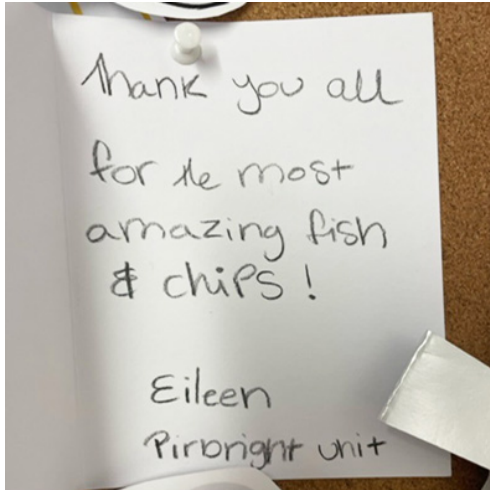 Thank you all
for the most
amazing fish
& chips!
Eileen
Pirbright unit